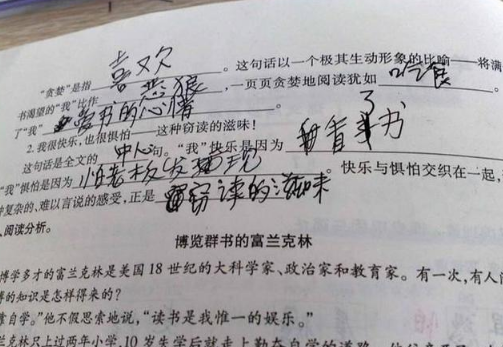 “贪婪”是指喜欢。这句话以一个极其生动形象的比喻——将满
书渴望的“我”比作恶狼，一页页贪婪地阅读犹如吃食。
了“我”爱书的心情
2. 我很快乐，也很惧怕——这种窃读的滋味！
这句话是全文的中心句。“我”快乐是因为看了书
“我”惧怕是因为怕老板发现。快乐与惧怕交织在一起，
种复杂的、难以言说的感受，正是窃读的滋味
、阅读分析。
博览群书的富兰克林
博学多才的富兰克林是美国 18 世纪的大科学家、政治家和教育家。有一次，有人
博的知识是怎样得来的？
靠自学。”他不假思索地说，“读书是我惟一的娱乐。”
兰克林只上过两年小学，10 岁生学后就走上勤奋自学的道路